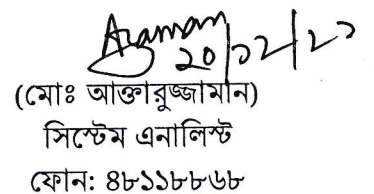 20/12/22
(মোঃ আক্তারুজ্জামান)
সিস্টেম এনালিস্ট
ফোন: ৪৮১১৮৮৬৮